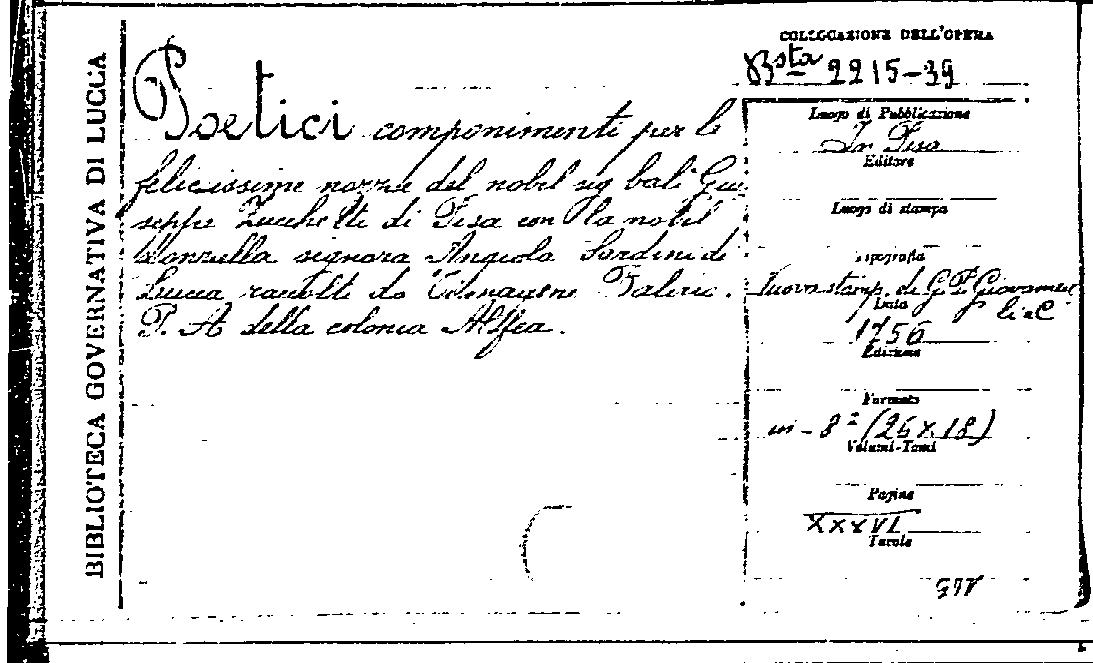 BIBLIOTECA GOVERNATIVA DI LUCCA
Poetici componimenti per le
felicissime nozze del nobil sig bali Giu
seppe Zucchetti di Pisa con la nobil
donzella signora Angiola Sardini di
Lucca raccolti da Falirio.
P. A della colonia Alfea.
COLLOCAZIONE DELL'OPERA
Bsta 2215-39
Luogo di Pubblicazione
In Pisa
Editore
Luogo di stampa
Tipografia
Nuova stamp. di G. P. Giovannel
li e C
Data
1756
Edizione
Formato
in-8° (26x18)
Volumi-Tomi
Pagine
XXXVI
Tavole